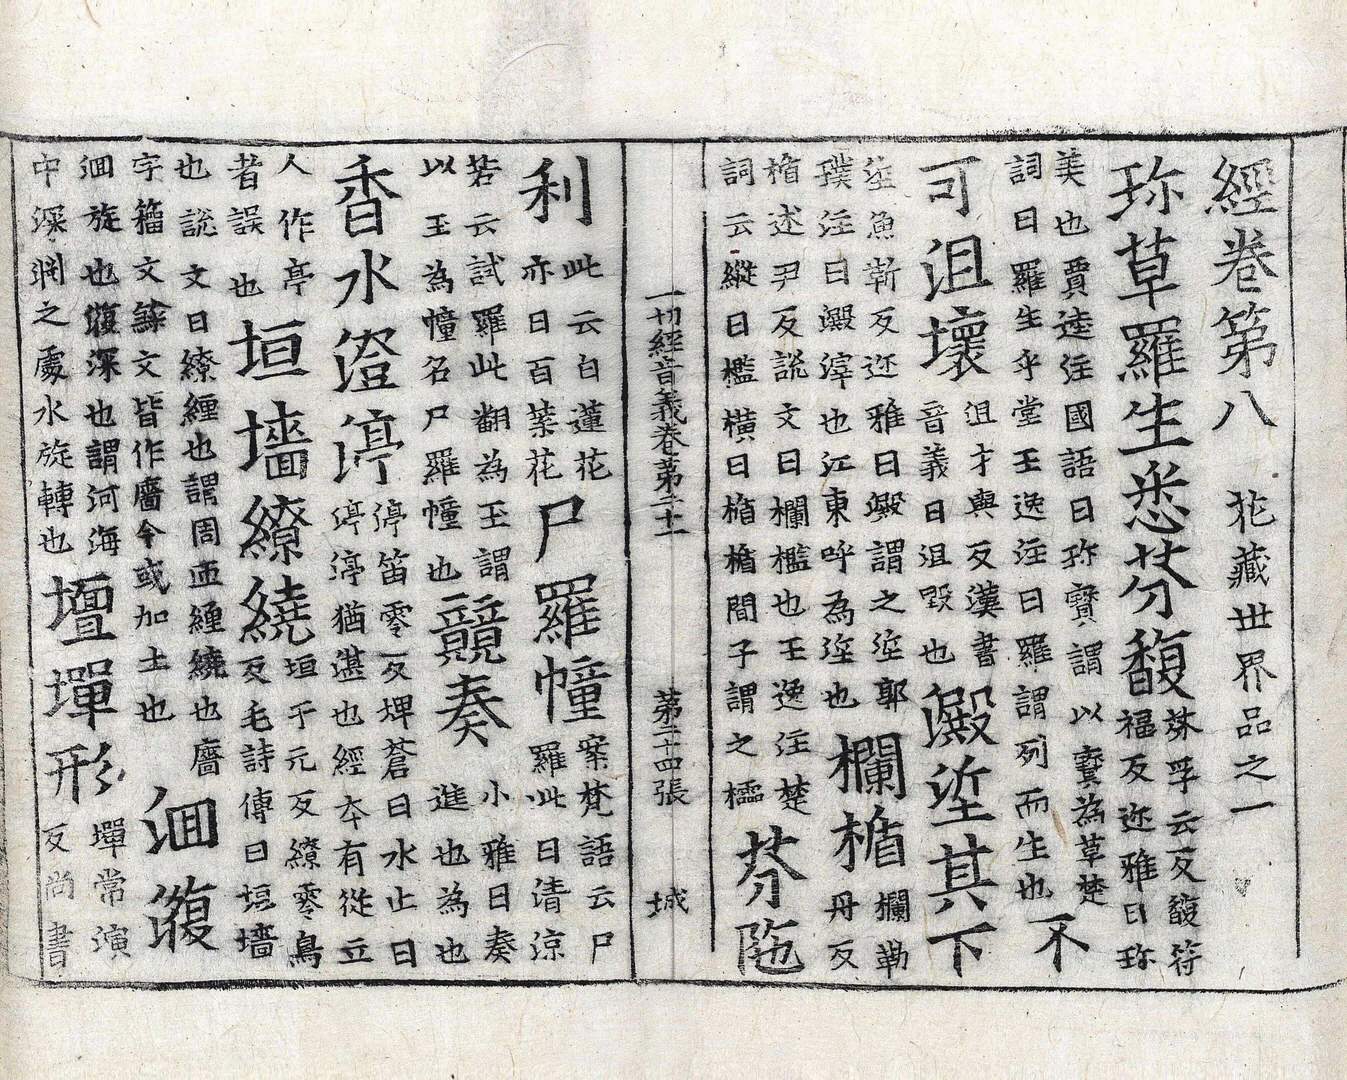 經卷第八　花藏世界品之一
珎草羅生悉芬馥
芬孚云反馥符
福反迩雅曰珎
美也賈逵注國語曰珎寶謂以寶為草楚
詞曰羅生乎堂王逸注曰羅謂列而生也
不
可沮壞
沮才與反漢書
音義曰沮毀也
澱垽其下
垽魚靳反迩雅曰澱謂之垽郭
璞注曰澱滓也江東呼為垽也
欄楯
欄勒
丹反
楯述尹反說文曰欄檻也王逸注楚
詞云縱曰檻橫曰楯楯間子謂之欞
芬陁
一切經音義卷第二十一　第二十四張　城
利
此云白蓮花
亦曰百葉花
尸羅幢
案梵語云尸
羅此曰清涼
若云試羅此翻為玉謂
以玉為幢名尸羅幢也
競奏
小雅曰奏
進也為也
香水澄渟
渟笛零反埤蒼曰水止曰
渟渟猶湛也經本有從立
人作亭
者誤也
垣墻繚繞
垣于元反繚零鳥
反毛詩傳曰垣墻
也說文曰繚纏也謂周匝纏繞也廧
字籀文文皆作廧今或加土也
洄澓
洄旋也澓深也謂河海
中深渊之處水旋轉也
壇墠形
墠常演
反尚書